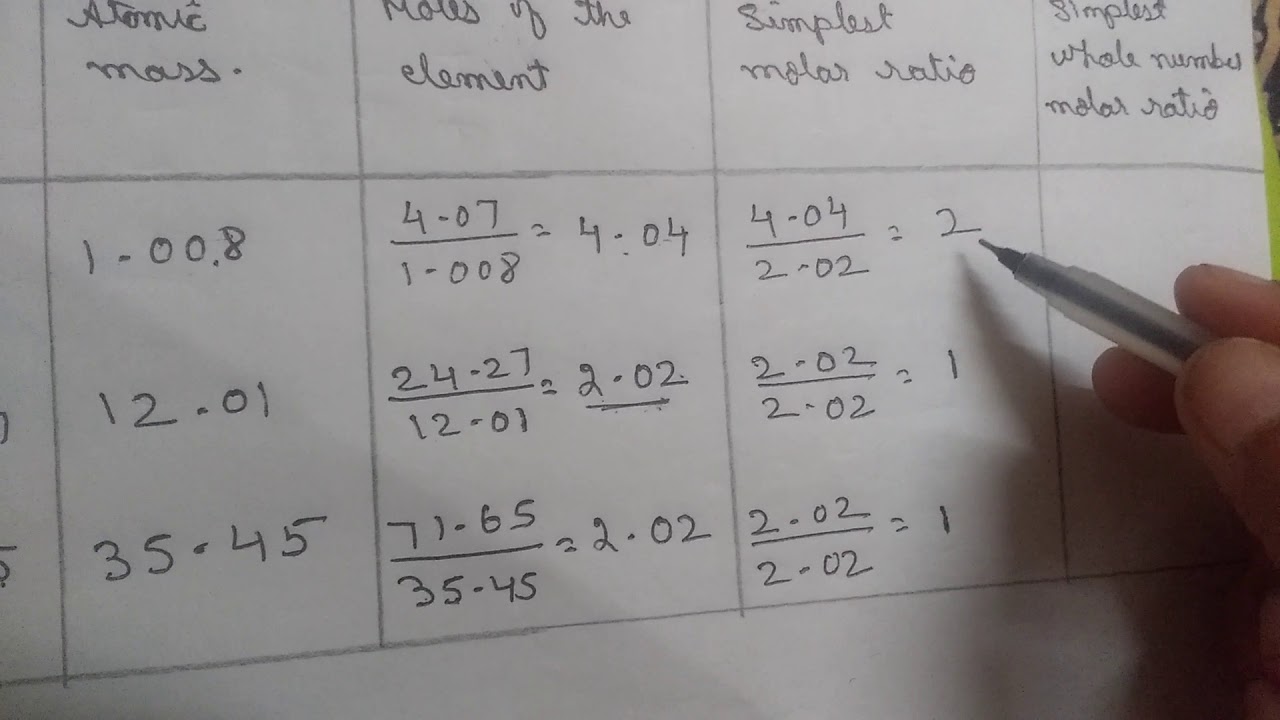 Atomic
mass.
Moles of the
element
Simplest
molar ratio
Simplest
whole number
molar ratio
1.00.8
4.07
1.008
= 4.04
4.04
2.02
= 2
12.01
24.27
12.01
= 2.02
2.02
2.02
= 1
35.45
71.65
35.45
= 2.02
2.02
2.02
= 1